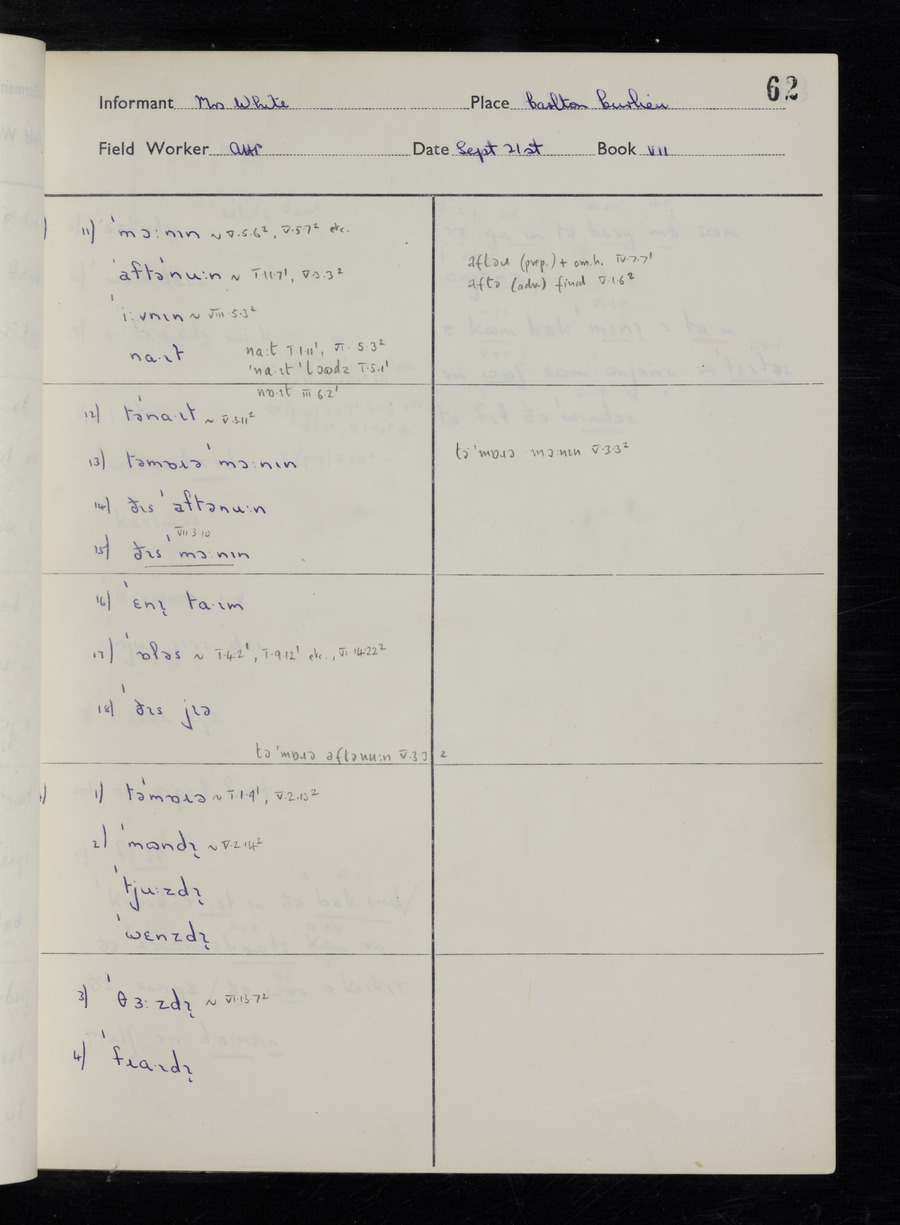 62
Informant Mrs White Place Carlton Curlieu
Field Worker AHP Date Sept 21st Book VII
11) ˈmɔ:nɪn ~ V.5.6², V.5.7² etc.
ˈaftəˈnu:n ~ I.11.7¹, V.3.3²
ˈi:vnɪn ~ VIII.5.3²
na·ɪt
na:t I.1.11¹, VI.5.3²
ˈna·ɪt
nɒ·ɪt III.6.2¹
aftəɹ (prep.) + om.h. IV.7.7¹
aftə (adv.) final V.1.6²
12) təna·ɪt ~ V.3.11²
13) təmɒɹə ˈmɔ:nɪn
təˈmɒɹə mɔ:nɪn V.3.3²
14) ðɪs ˈaftənu:n
VII.3.10
15) ðɪs ˈmɔ:nɪn
16) ˈɛnɪ̞ ta·ɪm
17) ˈɒləs ~ I.4.2¹, I.9.12¹ etc., VI.14.22²
18) ˈðɪs jɪə
təˈmɒɹə aftənu:n V.3.3²
1) təˈmɒɹə ~ I.1.9¹, V.2.13²
2) ˈmʊndɪ̞ ~ V.2.14²
ˈtju:zdɪ̞
ˈwɛnzdɪ̞
3) ˈθɜ:zdɪ̞ ~ VI.13.7²
4) ˈfɹa·ɪdɪ̞